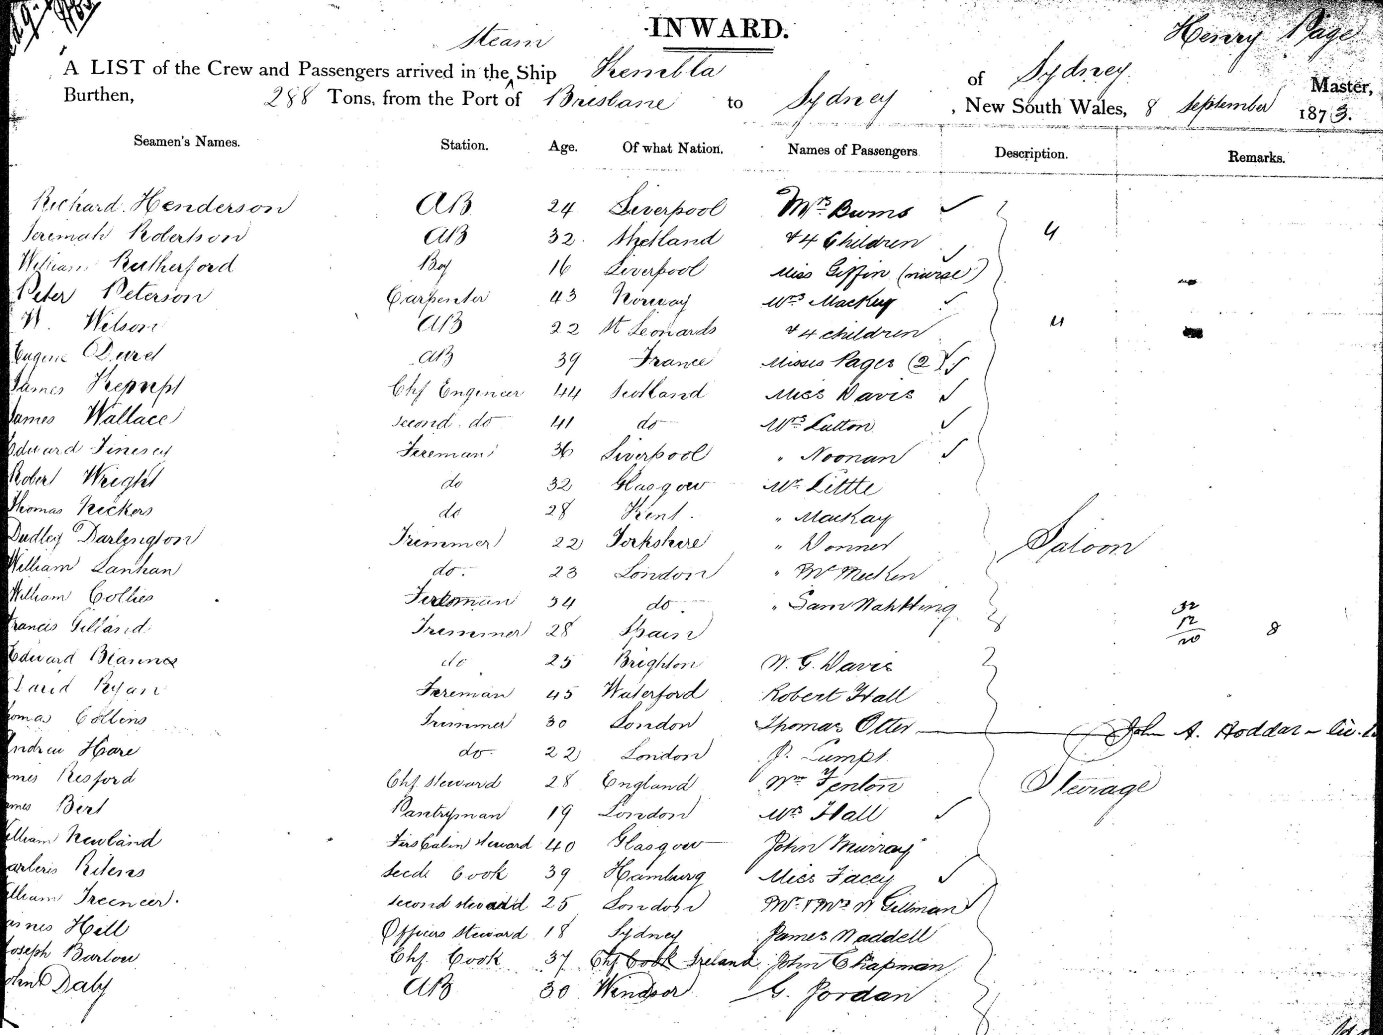 INWARD.
Henry Page
Steam
A LIST of the Crew and Passengers arrived in the Ship Kembla of Sydney Master,
Burthen, 288 Tons, from the Port of Brisbane to Sydney, New South Wales, 8 September 1873.
Seamen's Names. Station. Age. Of what Nation. Names of Passengers Description. Remarks.
Richard Henderson AB 24 Liverpool Mrs Burns
Jeremiah Robertson AB 32 Shetland & 4 Children 4
William Rutherford Boy 16 Liverpool Miss Giffin (nurse)
Peter Peterson Carpenter 43 Norway Mrs Mackay
W. Wilson AB 22 St Leonards & 4 children "
Eugene AB 39 France Misses Pages (2)
James Kempt Chf Engineer 44 Scotland Miss Davis
James Wallace second do 41 do Mrs Lutton
Edward Finesey Fireman 36 Liverpool " Noonan
Robert Wright do 32 Glasgow Mr Little
Thomas Vickers do 28 Kent. " Mackay
Dudley Darlington Trimmer 22 Yorkshire " Donner Saloon
William Lanhan do. 23 London " McMeckin
William Collies Fireman 34 do "
Francis Trimmer 28 Spain 32 12 20 8
Edward do 25 Brighton W. G. Davis
David Ryan Fireman 45 Waterford Robert Hall
Thomas Collins Trimmer 30 London Thomas Otter John A. Hoddar
Andrew Hare do. 22 London J. Lumpt.
James Resford Chf Steward 28 England Wm Fenton Steerage
James Bert Pantryman 19 London Mrs Hall
William Newland Fore Cabin Steward 40 Glasgow John Murray
Ritens Secd Cook 39 Hamburg Miss Facey
William second steward 25 London Mr & Mrs W Gillman
James Hill Officers Steward 18 Sydney James Waddell
Joseph Barlow Chf Cook 37 Chf Cook Ireland John Chapman
John Daly AB 30 Windsor G. Jordan